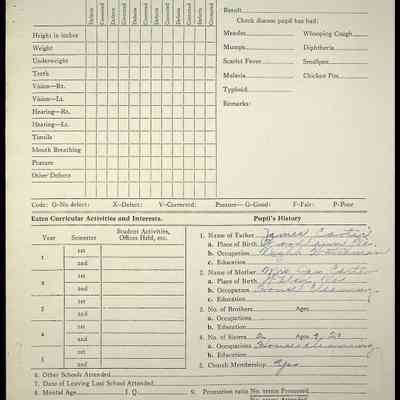 Defects Corrected Defects Corrected Defects Corrected Defects Corrected Defects Corrected Defects Corrected
Result
Check disease pupil has had:
Height in inches
Weight
Underweight
Teeth
Vision—Rt.
Vision—Lt.
Hearing—Rt.
Hearing—Lt.
Tonsils
Mouth Breathing
Posture
Other Defects
Measles Whooping Cough
Mumps Diphtheria
Scarlet Fever Smallpox
Malaria Chicken Pox
Typhoid
Remarks:
Code: O-No defect: X-Defect: V-Corrected: Posture— G-Good: F-Fair: P-Poor
Extra Curricular Activities and Interests.
Year Semester Student Activities, Offices Held, etc.
1 1st
2nd
1st
2nd
3 1st
2nd
1st
2nd
5 1st
2nd
Pupil's History
1. Name of Father James Carter
a. Place of Birth
b. Occupation Night Watchman
c. Education
2. Name of Mother Mrs Carter
a. Place of Birth
b. Occupation House Cleaning
c. Education
3. No. of Brothers Ages
a. Occupations
b. Education
4. No. of Sisters 2 Ages 9, 21
a. Occupations Housecleaning
b. Education
5. Church Membership Yes
6. Other Schools Attended
7. Date of Leaving Last School Attended
8. Mental Age I. Q. 9. Promotion ratio No. terms Promoted
No. terms Attended